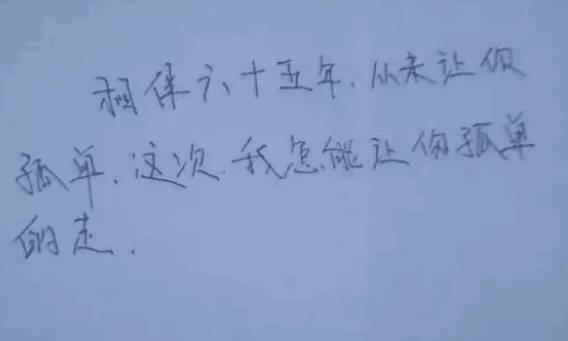 相伴六十五年.从未让你
孤单.这次.我怎能让你孤单
的走.